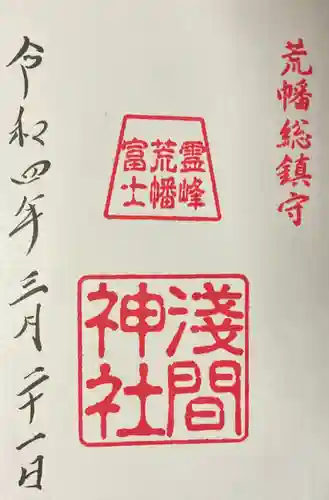 荒幡総鎮守
霊峰
荒幡
富士
淺間
神社
令和四年三月二十一日